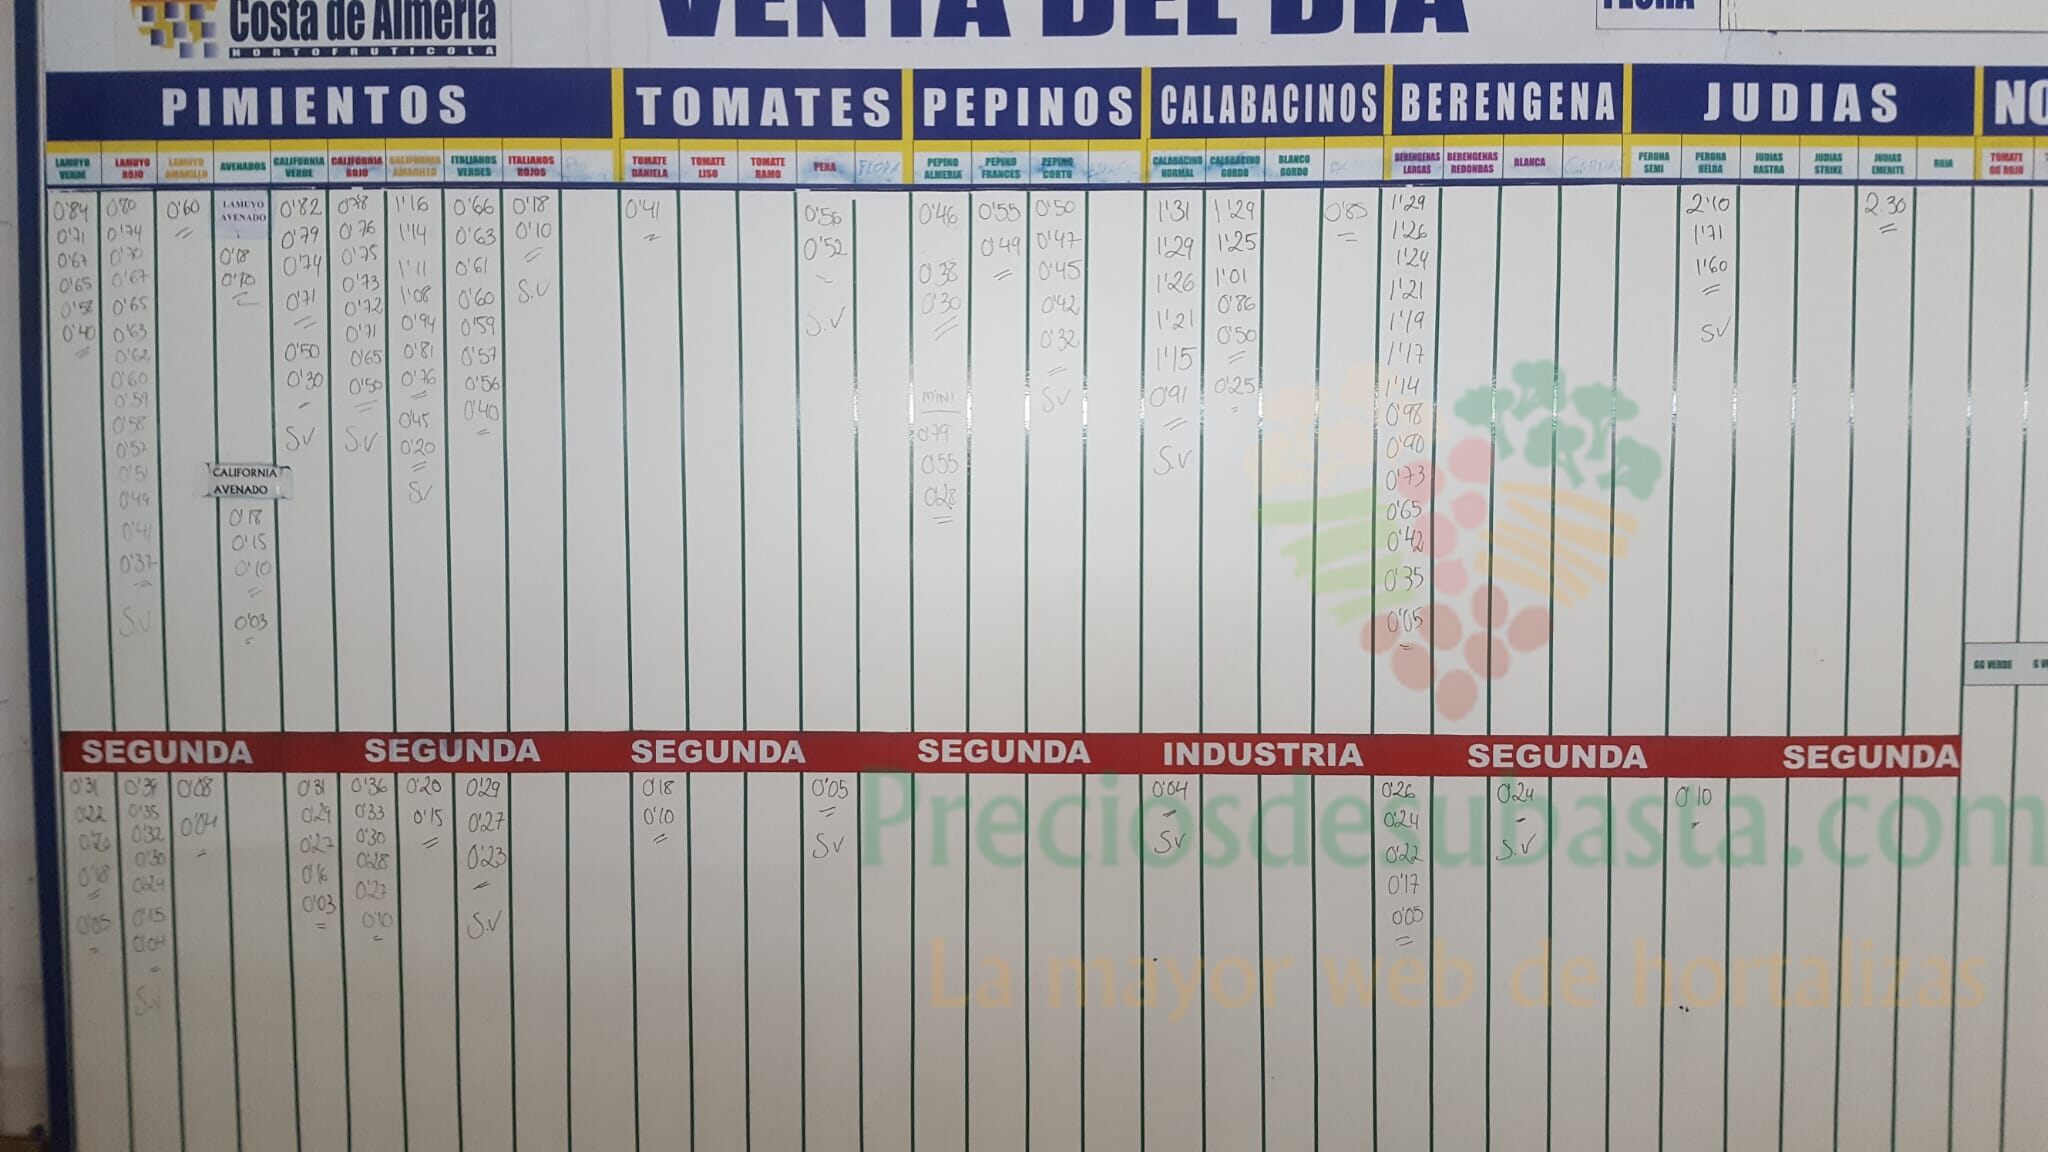 Costa de Almería
HORTOFRUTICOLA
VENTA DEL DIA
FECHA
PIMIENTOS TOMATES PEPINOS CALABACINOS BERENGENA JUDIAS NO
LAMUYO VERDE
LAMUYO ROJO
LAMUYO AMARILLO
AVENADOS
CALIFORNIA VERDE
CALIFORNIA ROJO
CALIFORNIA AMARILLO
ITALIANOS VERDES
ITALIANOS ROJOS
TOMATE DANIELA
TOMATE LISO
TOMATE RAMO
PERA
PEPINO ALMERIA
PEPINO FRANCES
PEPINO CORTO
CALABACINO NORMAL
CALABACINO GORDO
BLANCO GORDO
BERENGENAS LARGAS
BERENGENAS REDONDAS
BLANCA
PERONA SEMI
PERONA HELDA
JUDIAS RASTRA
JUDIAS STRIKE
JUDIAS EMERITE
ROJA
TOMATE GG ROJO
0'84
0'71
0'67
0'65
0'58
0'40
0'80
0'74
0'70
0'67
0'65
0'63
0'62
0'60
0'59
0'58
0'57
0'51
0'49
0'41
0'37
S.V
0'60
LAMUYO
AVENADO
0'18
CALIFORNIA
AVENADO
0'18
0'15
0'10
0'03
0'82
0'79
0'74
0'71
0'50
0'30
S.V
0'78
0'76
0'75
0'73
0'72
0'71
0'65
0'50
S.V
1'16
1'14
1'11
1'08
0'94
0'81
0'76
0'45
0'20
SV
0'66
0'63
0'61
0'60
0'59
0'57
0'56
0'40
0'18
0'10
S.V
0'41
0'56
0'52
S.V
0'46
0'38
0'30
MINI
0'79
0'55
0'28
0'55
0'49
0'50
0'47
0'45
0'42
0'32
SV
1'31
1'29
1'26
1'21
1'15
0'91
S.V
1'29
1'25
1'01
0'86
0'50
0'25
0'85
1'29
1'26
1'24
1'21
1'19
1'17
1'14
0'98
0'90
0'73
0'65
0'42
0'35
0'05
2'10
1'71
1'60
SV
2.30
GG VERDE
SEGUNDA SEGUNDA SEGUNDA SEGUNDA INDUSTRIA SEGUNDA SEGUNDA
0'31
0'22
0'20
0'18
0'05
0'39
0'35
0'32
0'30
0'29
0'15
0'04
S.V
0'08
0'04
0'31
0'29
0'27
0'16
0'03
0'36
0'33
0'30
0'28
0'27
0'10
0'20
0'15
0'29
0'27
0'23
S.V
0'18
0'10
0'05
SV
0'04
SV
0'26
0'24
0'22
0'17
0'05
0'24
S.V
0'10
Preciosdesubasta.com
La mayor web de hortalizas